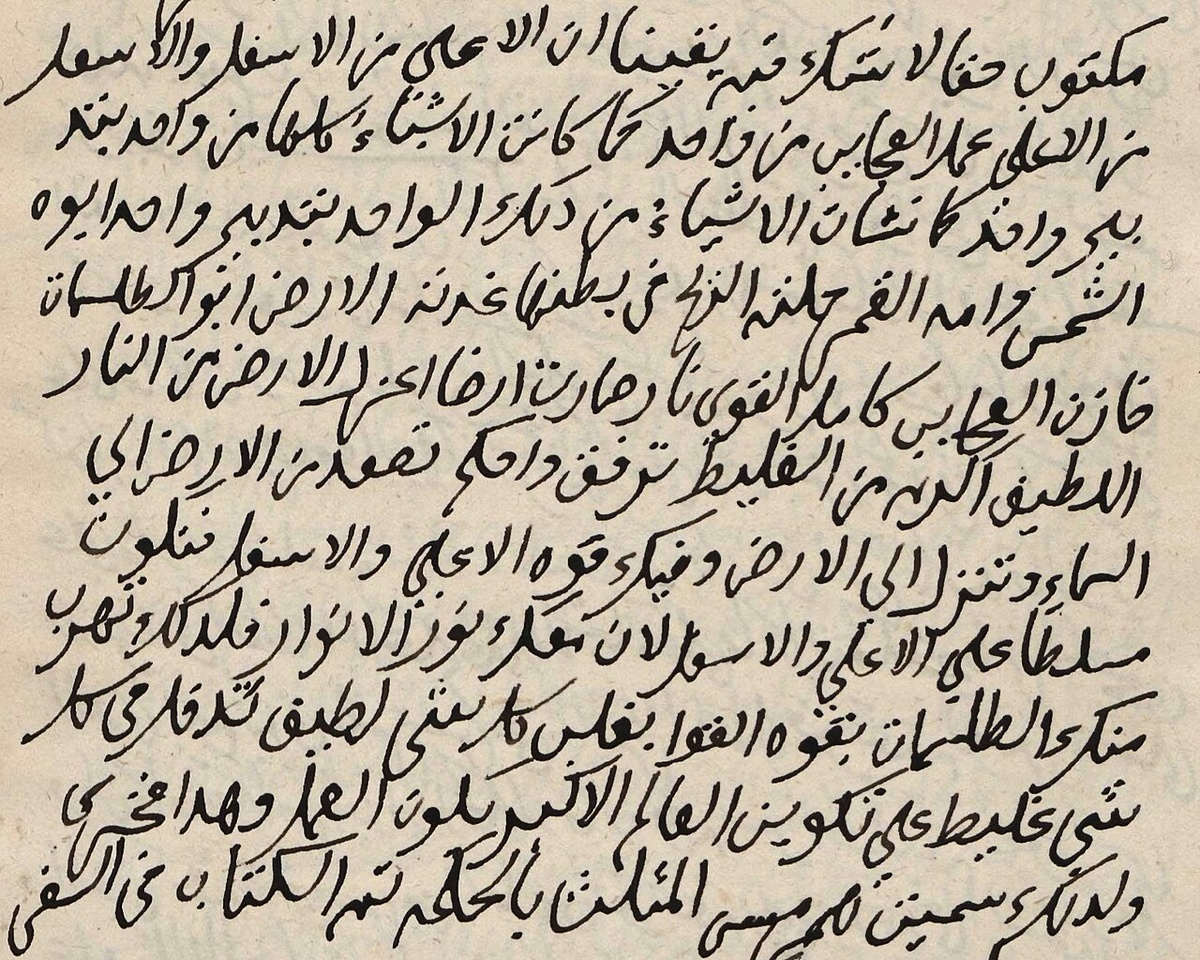 مكتوب حقا لا شك فيه يقينا ان الاعلي من الاسفل والاسفل
من الاعلي عمل العجايب من واحد كما كانت الاشياء كلها من واحد بتد
بير واحد كما نشات الاشياء من ذلك الواحد بتدبير واحد ابوه
الشمس وامه القمر حملته الريح في بطنها غدته الارض ابو الطلسمات
خازن العجايب كامل القوي نار صارت ارضا اعزل الارض من النار
اللطيف اكرم من الغليظ برفق وحكم تصعد من الارض الي
السماء وتنزل الي الارض وفيك قوه الاعلي والاسفل فتكون
مسلطا علي الاعلي والاسفل لان معك نور الانوار فلدلك تهرب
منك الظلمات بقوه القوا تغلب كل شي لطيف تدخل في كل
شي غليظ علي تكوين العالم الاكبر يكون العمل وهدا فخري
ولدلك سميت هرمس المثلث بالحكمه تم الكتاب في السفر